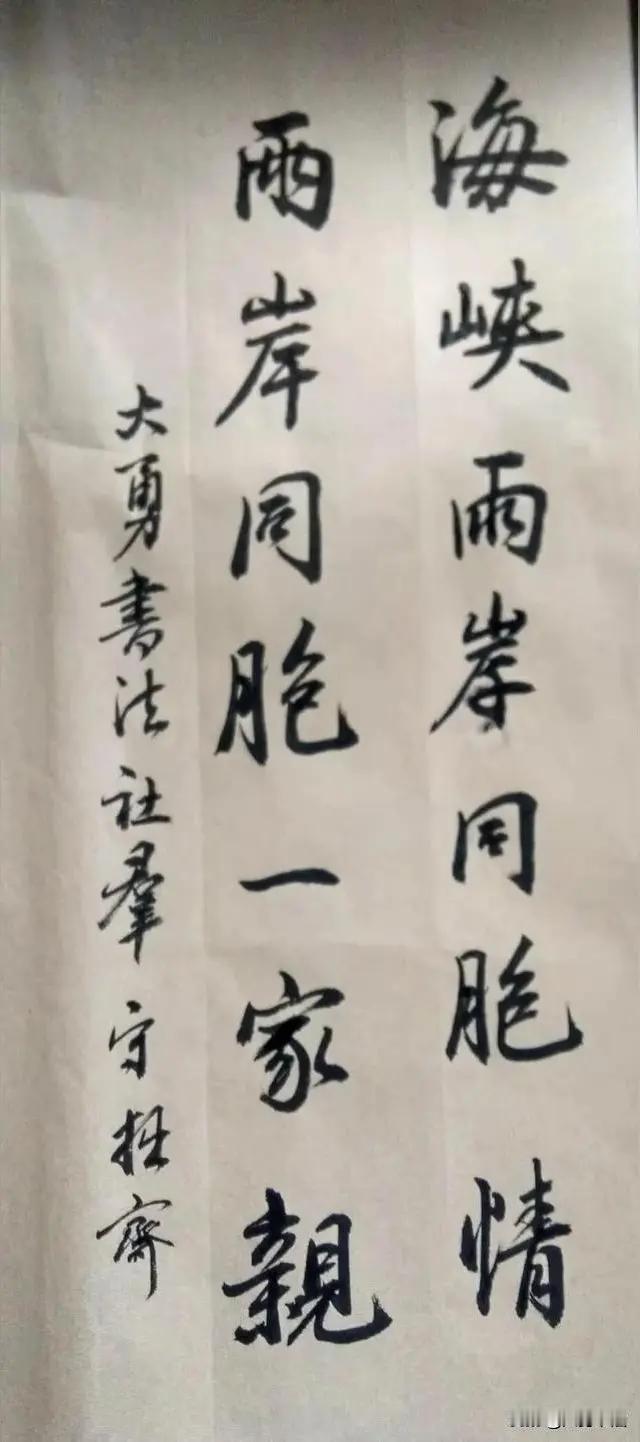 海峽兩岸同胞情
兩岸同胞一家親
大勇書法社羣 守拙齋